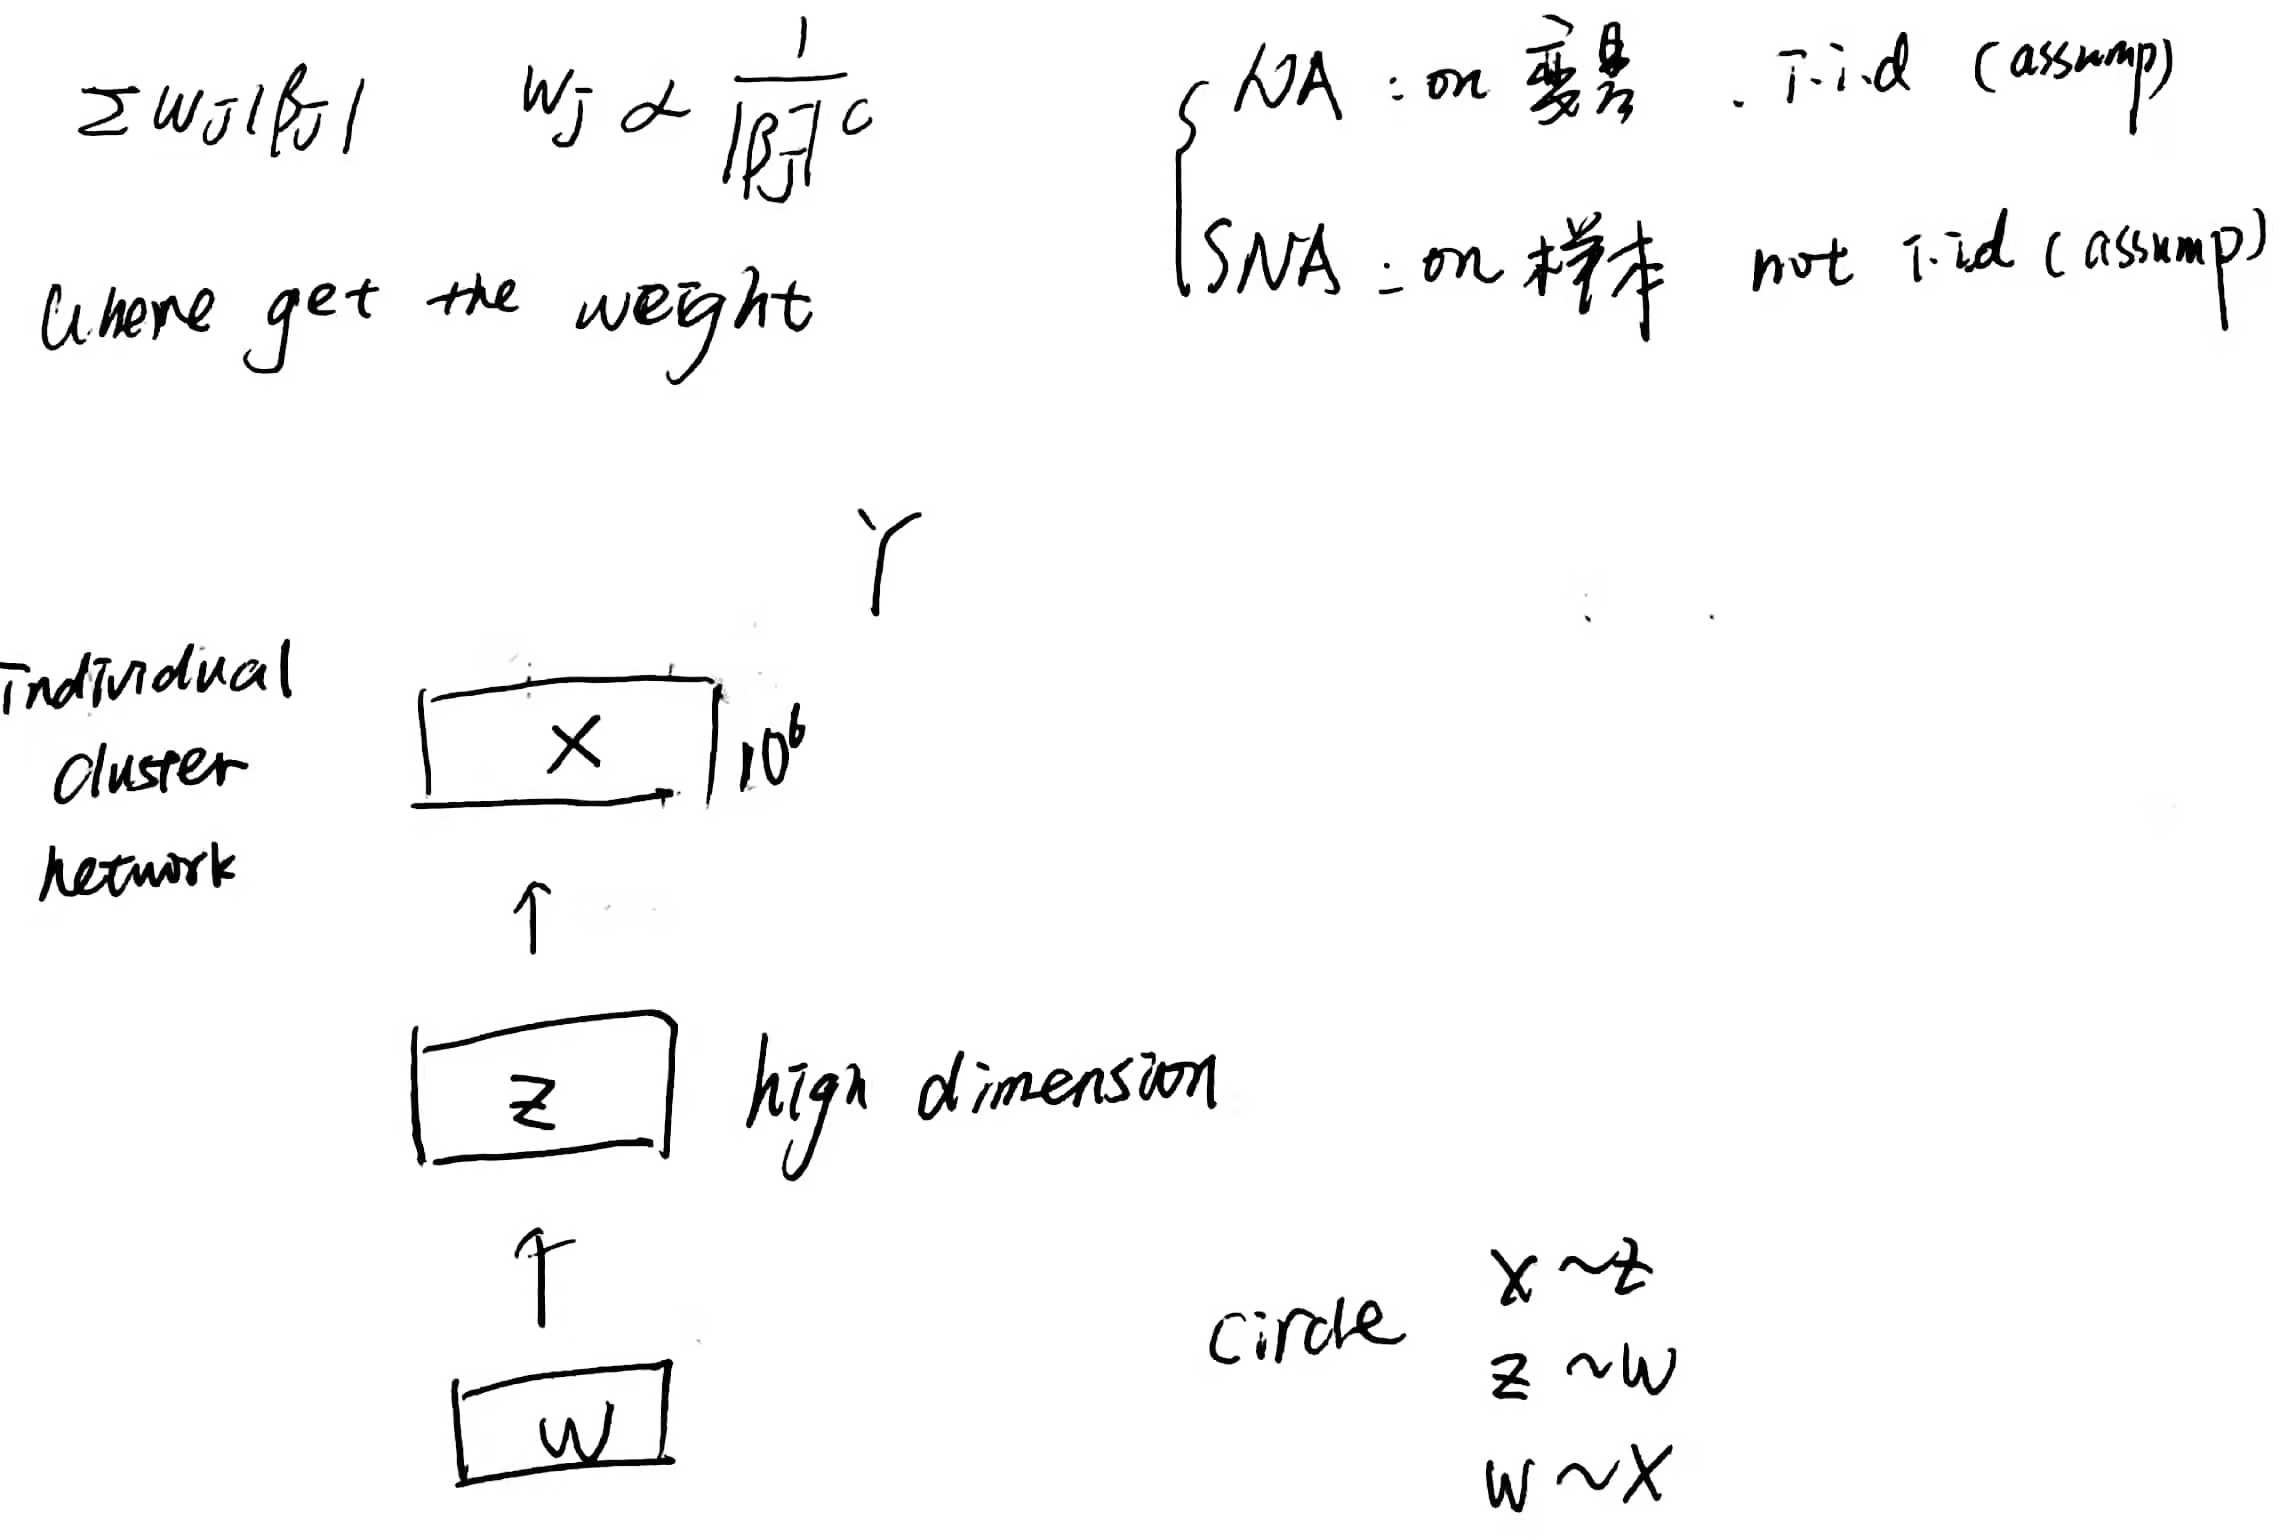 Σ Wj|βj| Wj ∝ 1/|βj|^c
where get the weight
NA : on 变量 . i.i.d (assump)
SNA : on 样本 not i.id (assump)
Y
individual
cluster
network
X 10^6
↑
Z high dimension
↑
W
circle
X ~ Z
Z ~ W
W ~ X